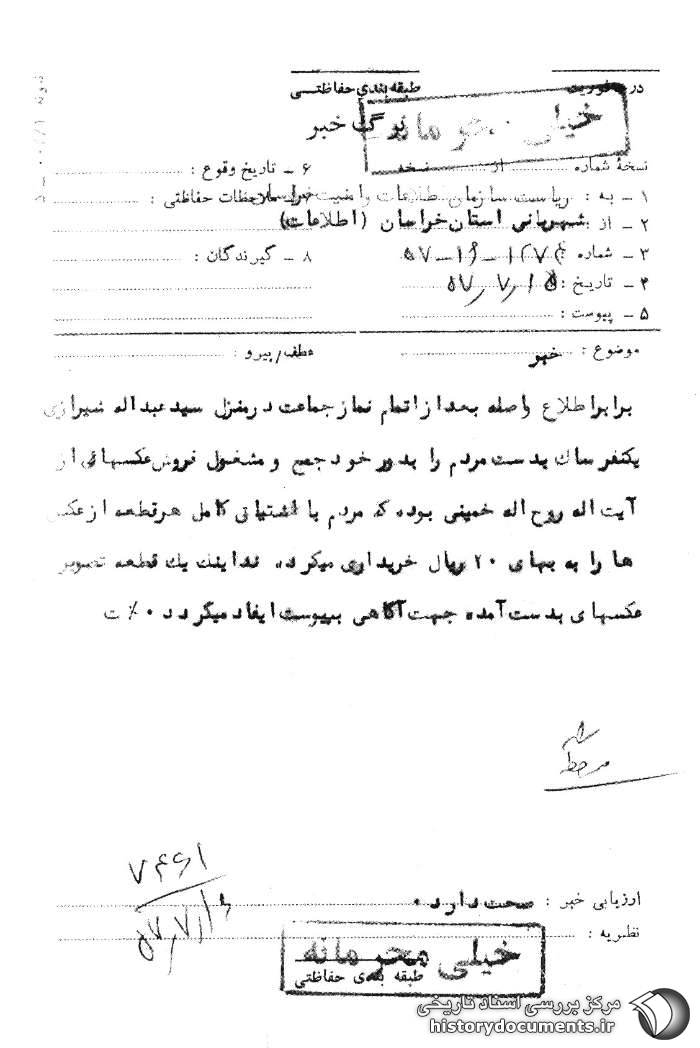 درجه فوریت
طبقه بندی حفاظتی
خیلی محرمانه
برگ خبر
نسخهٔ شماره از نسخه
۱ ـ به : ریاست سازمان اطلاعات و امنیت خراسان
۲ ـ از : شهربانی استان خراسان (اطلاعات)
۳ ـ شماره :
۴ ـ تاریخ : ۵۷٫۷٫۱۵
۵ ـ پیوست :
۶ ـ تاریخ وقوع :
ملاحظات حفاظتی :
۸ ـ گیرندگان :
موضوع : خبر
عطف/پیرو :
برابر اطلاع واصله بعد از اتمام نماز جماعت در منزل سید عبداله شیرازی
یکنفر ساك بدست مردم را بدور خود جمع و مشغول فروش عکسهائی از
آیت اله روح اله خمینی بوده که مردم با اشتیاق کامل هر قطعه از عکس
ها را به بهای ۲۰ ریال خریداری میکرده یك قطعه تصویر
عکسهای بدست آمده جهت آگاهی بپیوست ایفاد میگردد ۰٪ ت
ارزیابی خبر : صحت دارد ۰
نظریه :
۷۴۶۱
خیلی محرمانه
طبقه بندی حفاظتی
مرکز بررسی اسناد تاریخی
historydocuments.ir